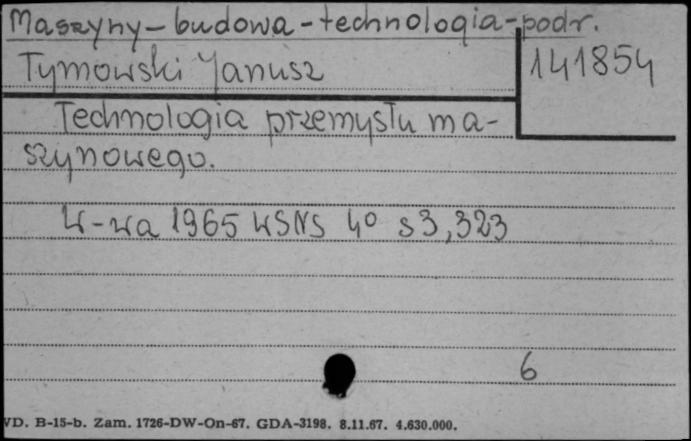 Maszyny-budowa-technologia-podr.
Tymowski Janusz
141854
Technologia przemysłu ma-
szynowego.
W-wa 1965 WSNS 4° s 3, 323
6
VD. B-15-b. Zam. 1726-DW-On-67. GDA-3198. 8.11.67. 4.630.000.